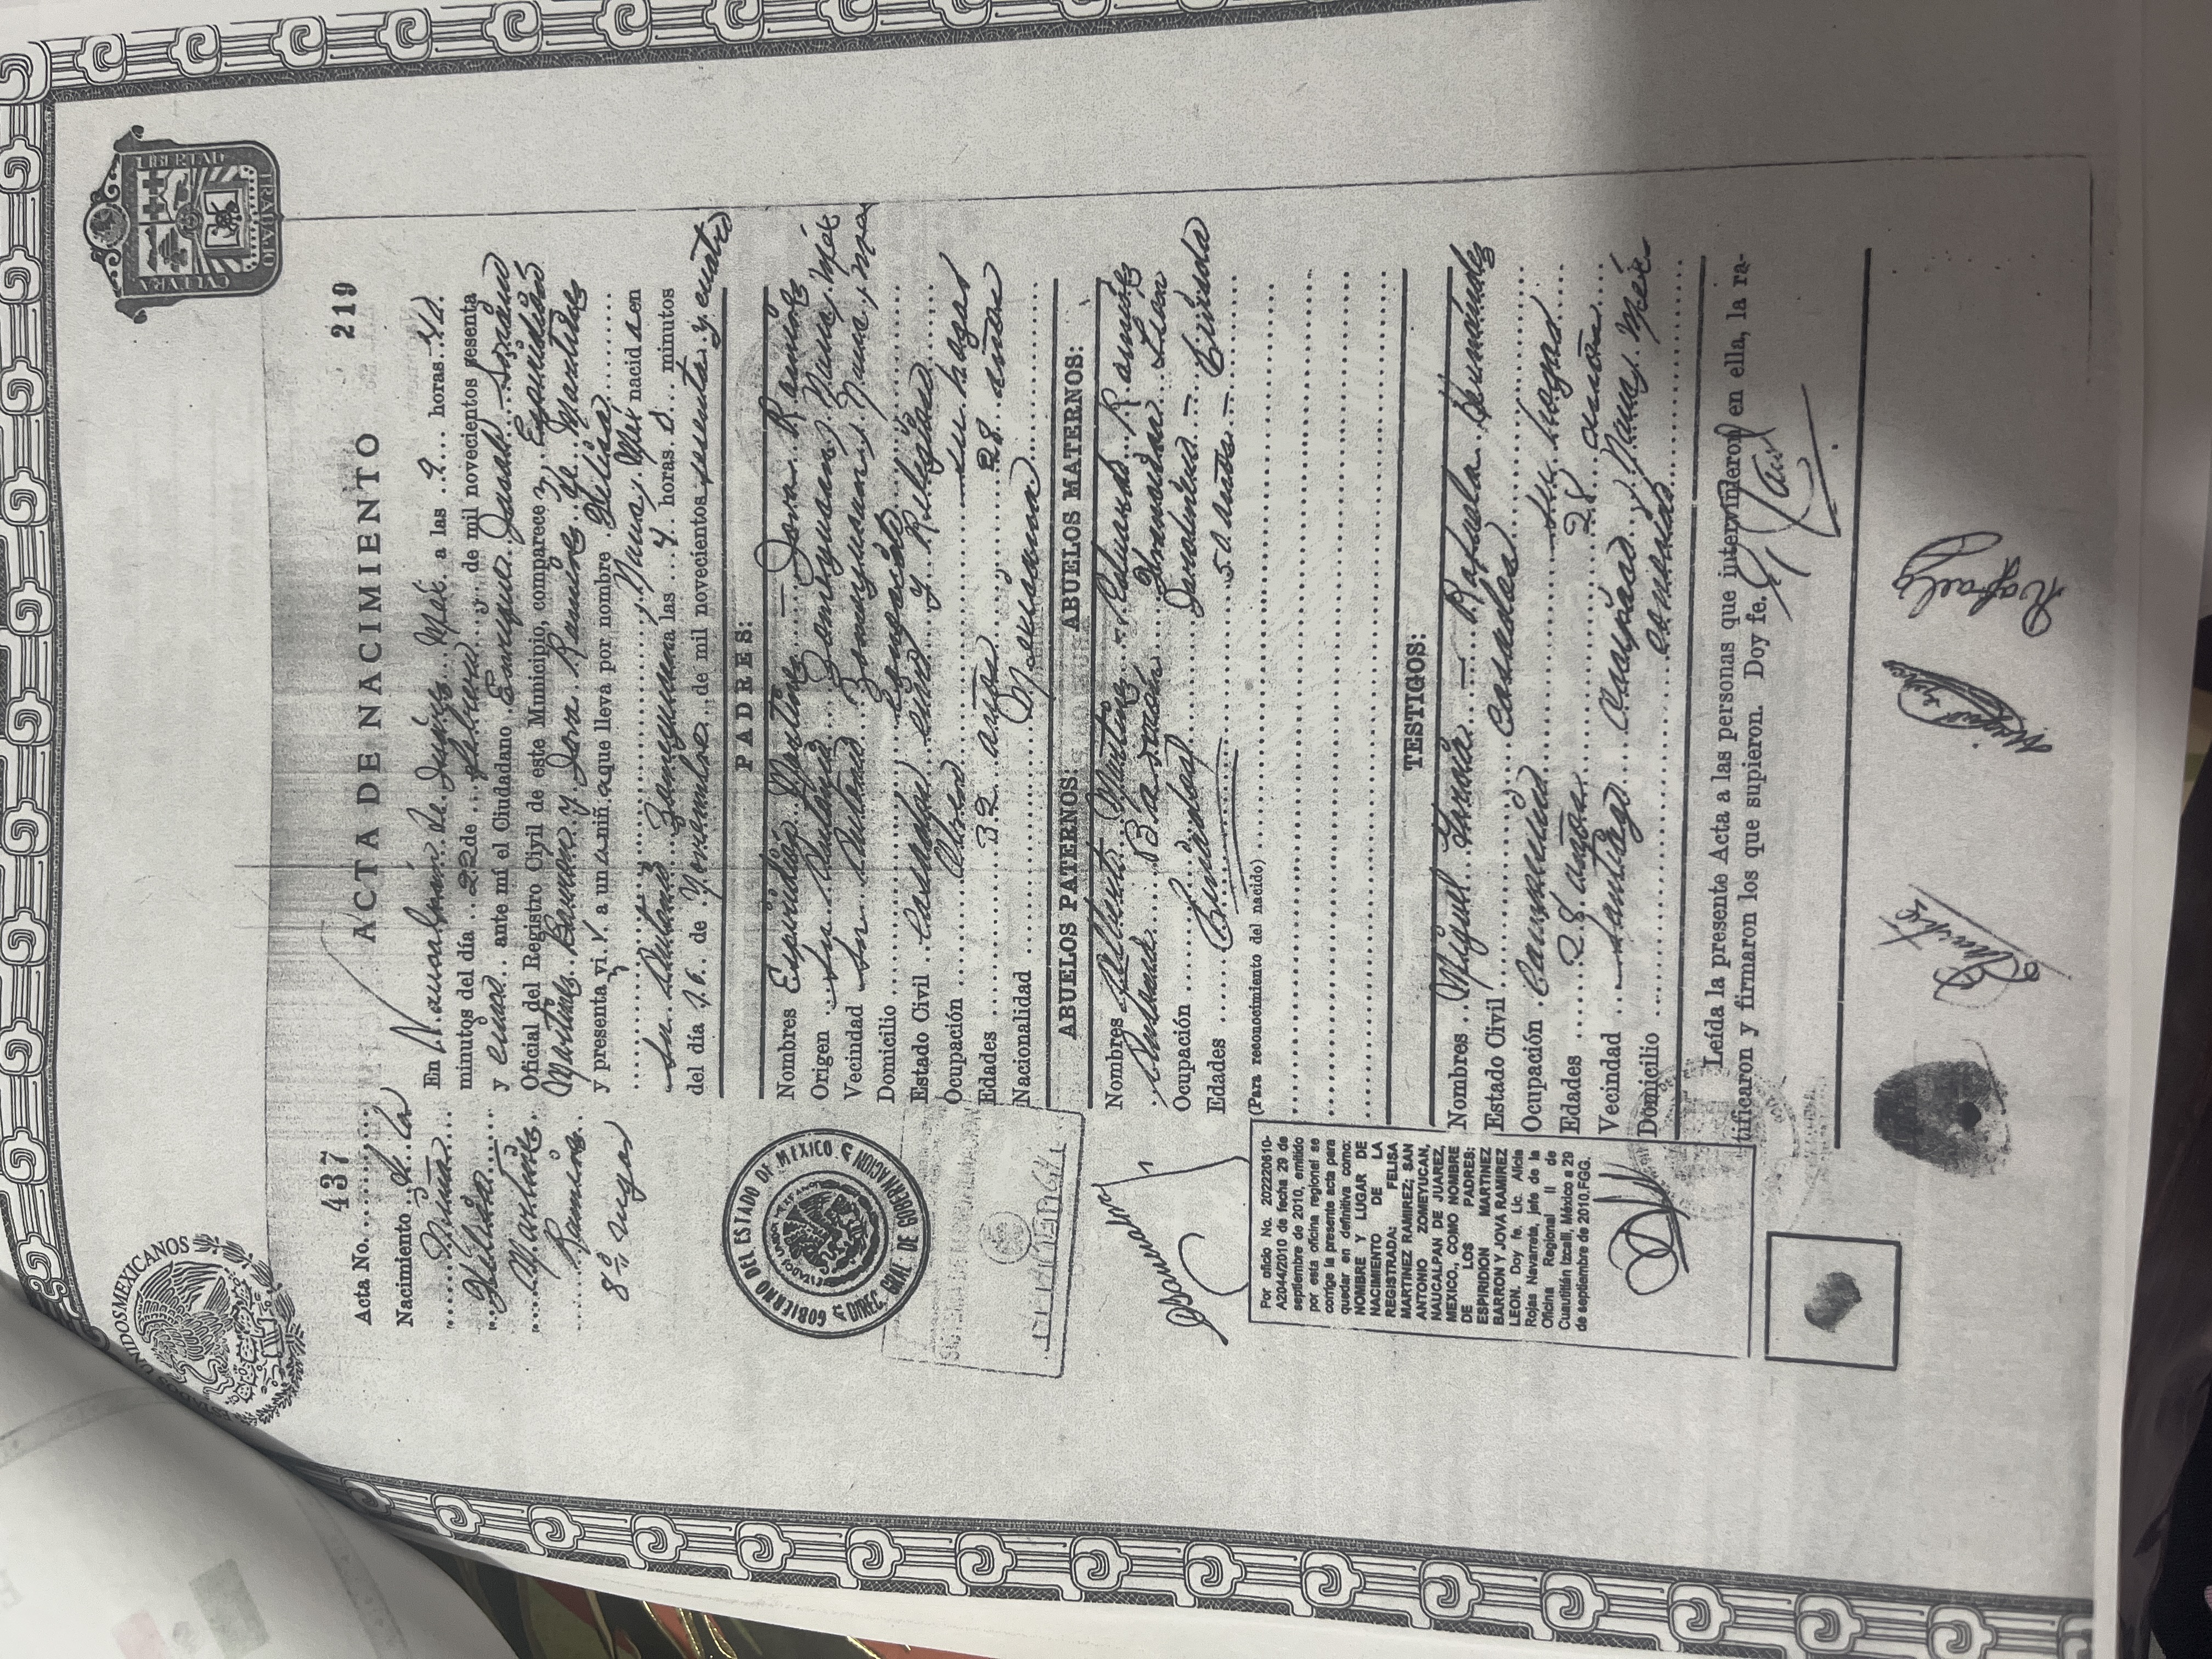 ESTADOS UNIDOS MEXICANOS
LIBERTAD
CVLTVRA
TRABAJO
Acta No. 437
ACTA DE NACIMIENTO
219
Nacimiento de la
niña
Felisa
Martínez
Ramírez
8º lugar
En Naucalpan de Juárez Méx. a las 9 horas
minutos del día 22 de febrero y de mil novecientos sesenta
y cinco ante mí el Ciudadano Enrique Jurado
Oficial del Registro Civil de este Municipio, comparece n, Espiridión
Martínez Barron y Jova Ramírez de Martínez
y presenta vi v a un a niñ a que lleva por nombre Felisa
San Antonio Zomeyucan, Nauc, Méx nacid a en
las 4 horas minutos
del día 16 de Noviembre de mil novecientos sesenta y cuatro
PADRES:
Nombres Espiridión Martínez — Jova Ramírez
Origen San Antonio Zomeyucan, Nauc, Méx
Vecindad San Antonio Zomeyucan, Nauc, Méx
Domicilio conocido
Estado Civil Casados civil y Religioso
Ocupación Obrero su hogar
Edades 32 años 28 años
Nacionalidad Mexicana
ABUELOS PATERNOS: ABUELOS MATERNOS:
Nombres Martínez - Eduardo Ramírez
León
Ocupación
Edades 50 años — finada
(Para reconocimiento del nacido)
TESTIGOS:
Nombres Miguel — Rafaela Hernández
Estado Civil Casados
Ocupación su hogar
Edades 28 años 28 años
Vecindad Nauc, Méx
Domicilio conocido
Leída la presente Acta a las personas que intervinieron en ella, la ra-
tificaron y firmaron los que supieron. Doy fe.
GOBIERNO DEL ESTADO DE MEXICO
DIREC. GRAL. DE GOBERNACION
Por oficio No. 202220610-
A2044/2010 de fecha 29 de
septiembre de 2010, emitido
por esta oficina regional se
corrige la presente acta para
quedar en definitiva como:
NOMBRE Y LUGAR DE
NACIMIENTO DE LA
REGISTRADA: FELISA
MARTINEZ RAMIREZ; SAN
ANTONIO ZOMEYUCAN,
NAUCALPAN DE JUAREZ,
MEXICO., COMO NOMBRE
DE LOS PADRES:
ESPIRIDION MARTINEZ
BARRON Y JOVA RAMIREZ
LEON. Doy fe. Lic. Alicia
Rojas Navarrete, jefe de la
Oficina Regional II de
Cuautitlán Izcalli, México a 29
de septiembre de 2010.FGG.
Rafaela